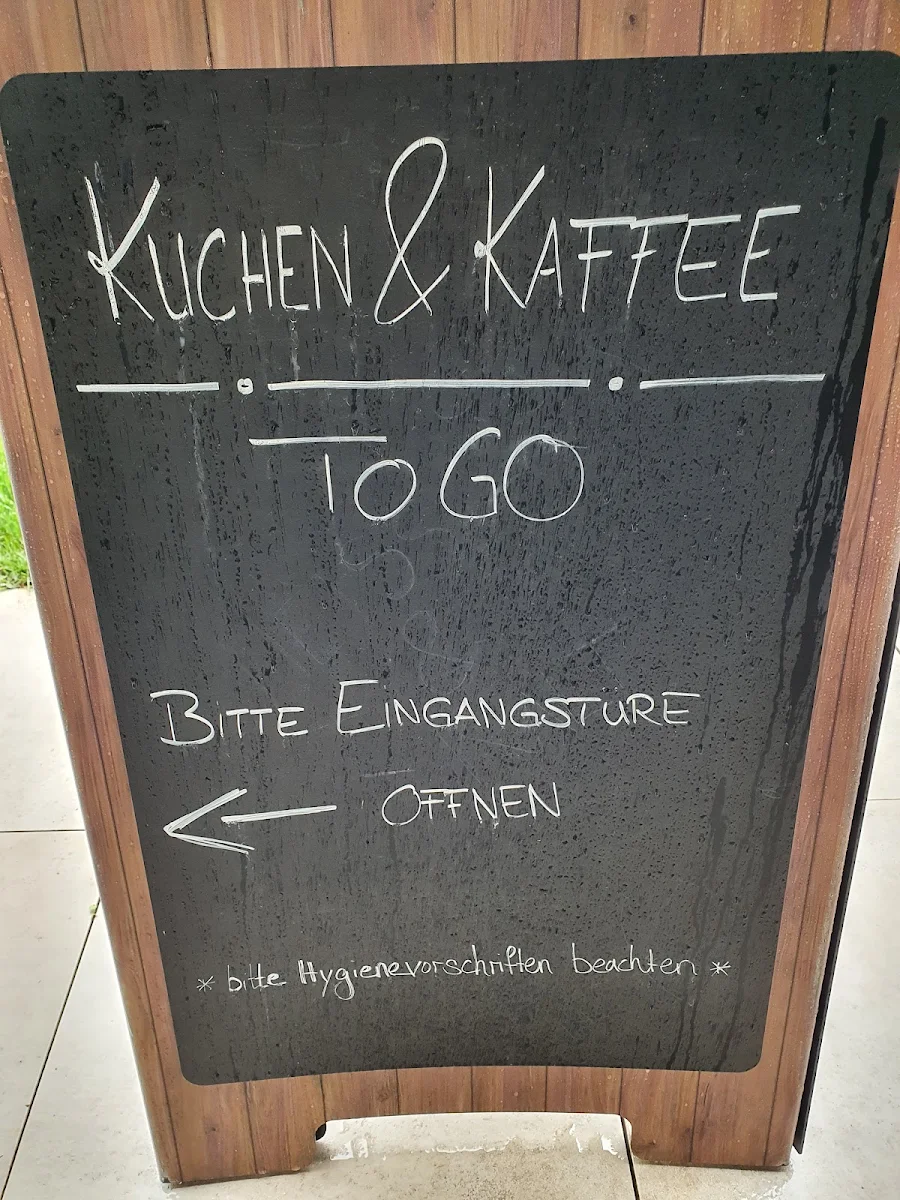 KUCHEN & KAFFEE
TO GO
BITTE EINGANGSTURE
OFFNEN
* bitte Hygienevorschriften beachten *